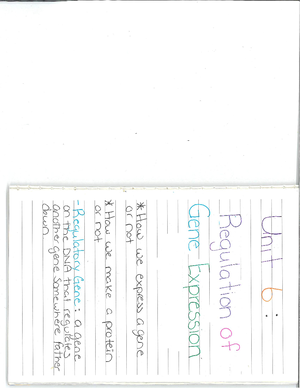 Unit 6:
Regulation of
Gene Expression
* How we express a gene
or not
* How we make a protein
or not
- Regulatory Gene: a gene
on the DNA that regulates
another gene somewhere father
down